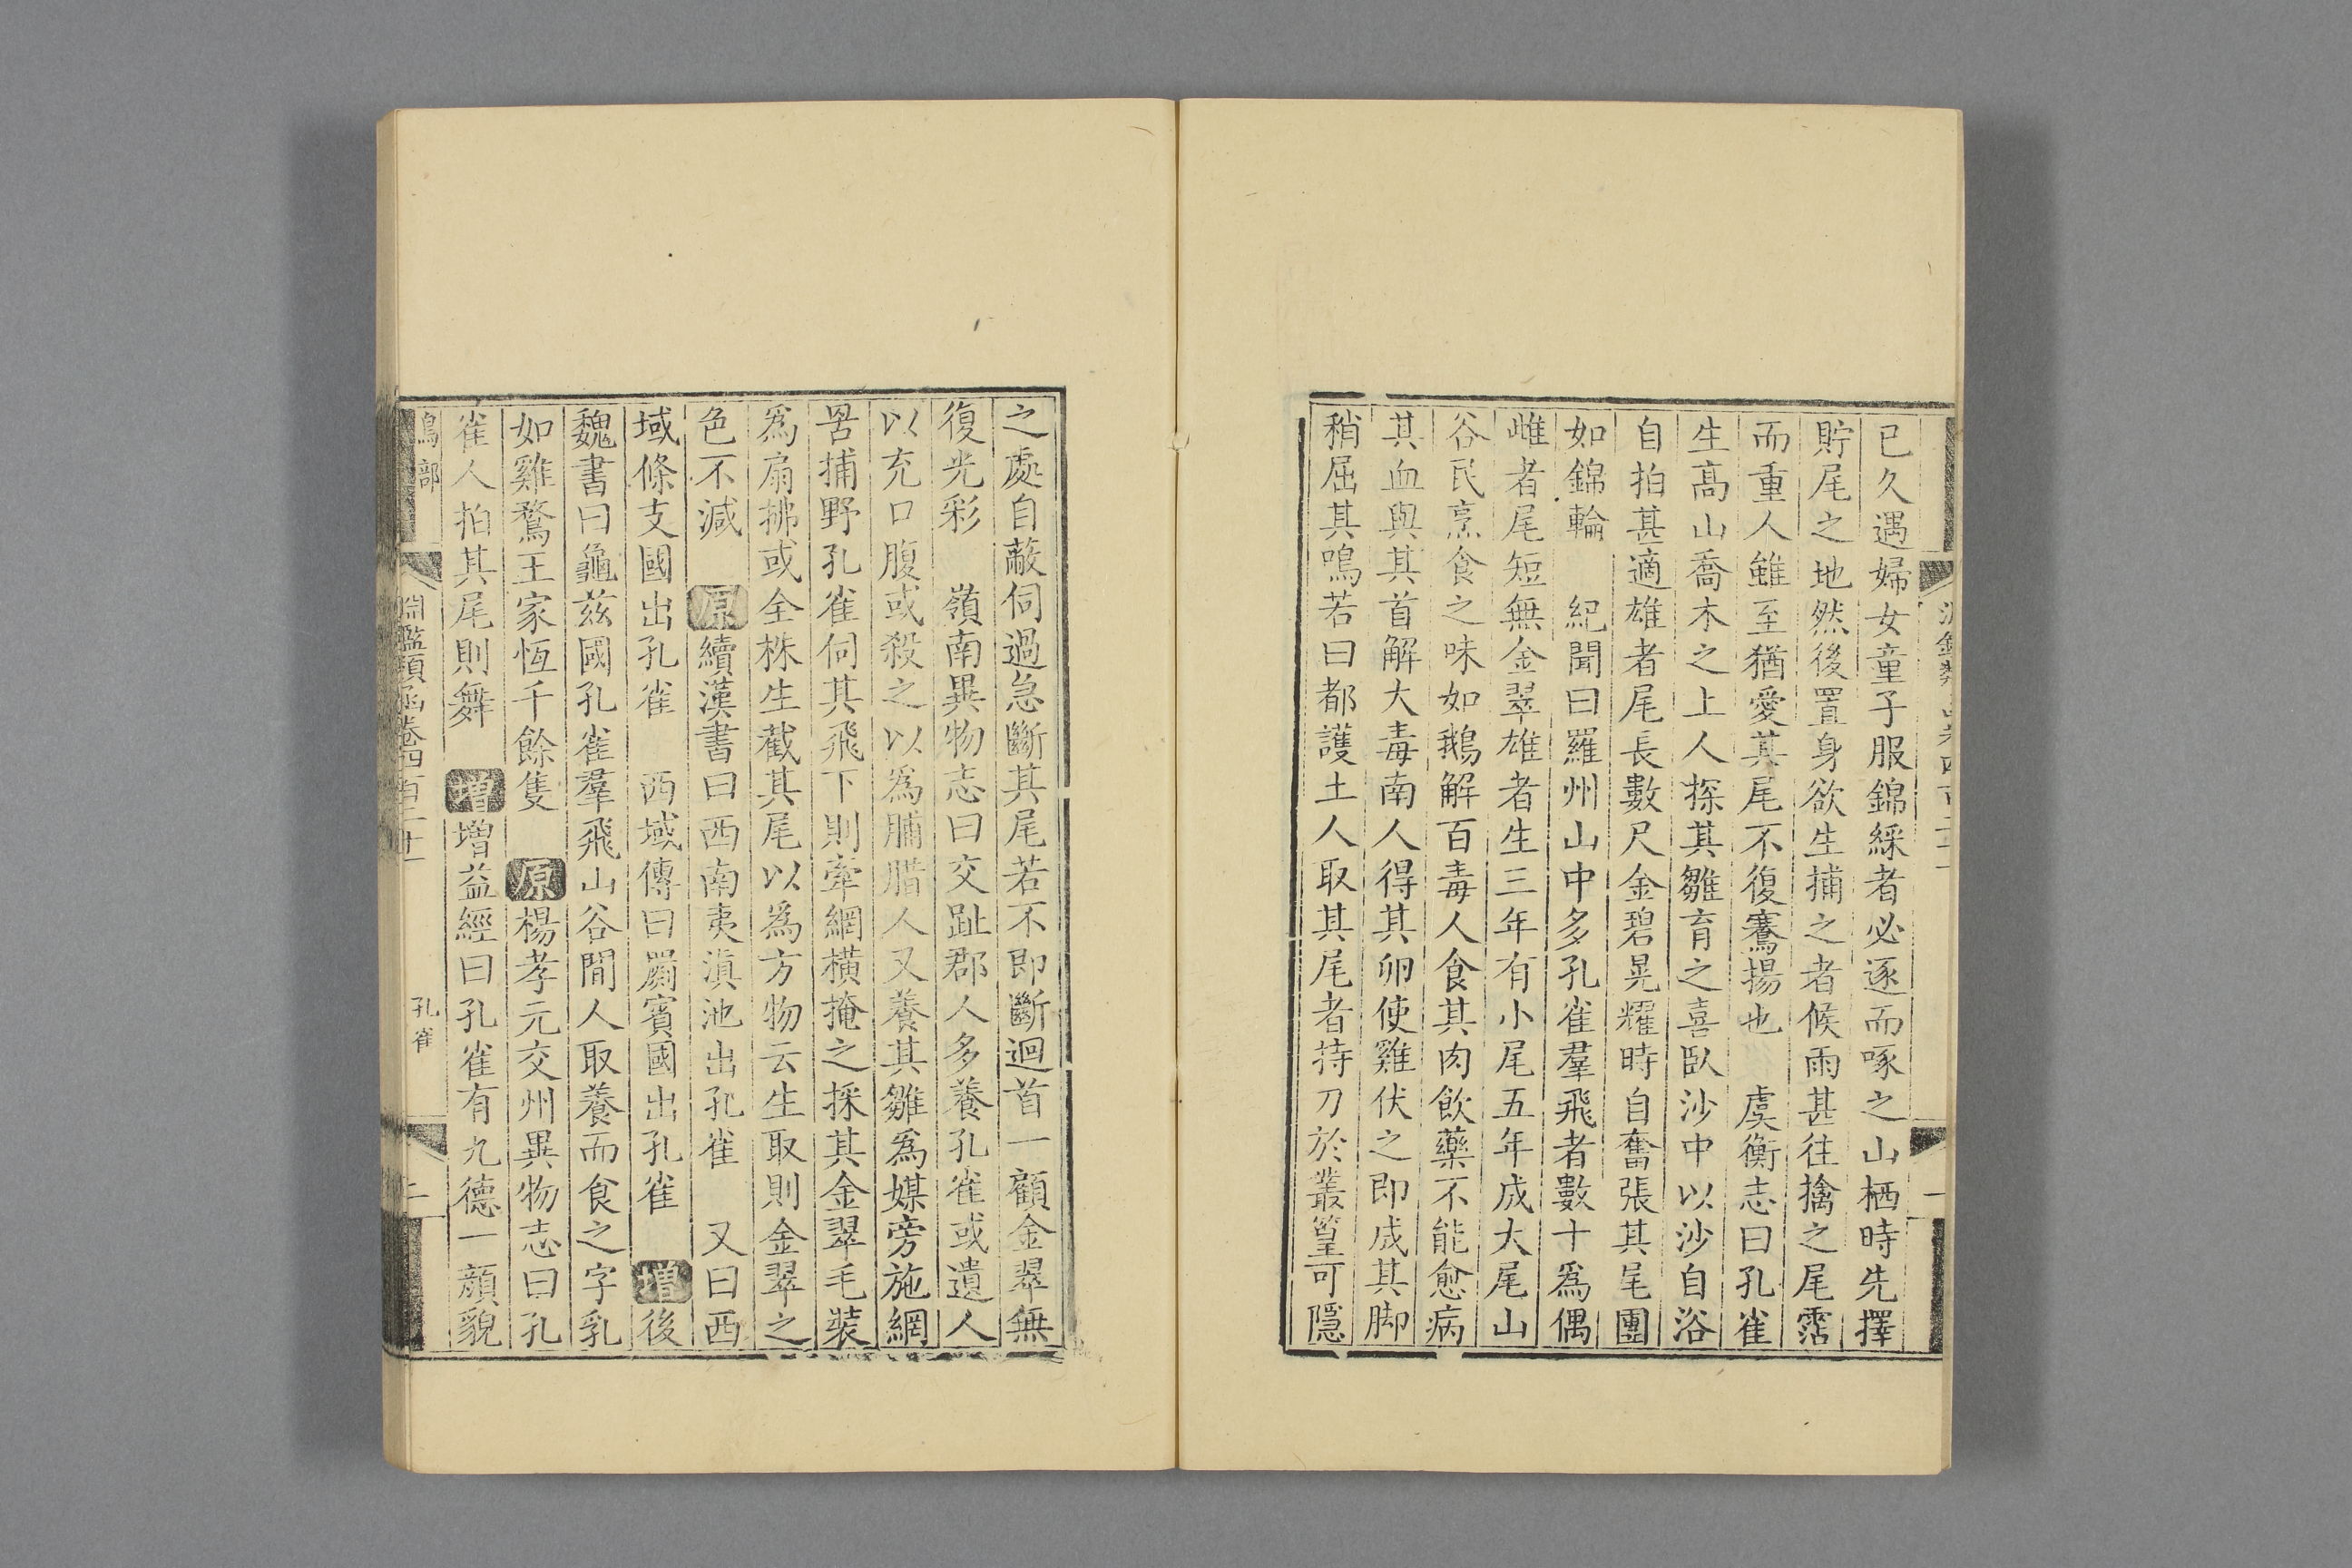 已久遇婦女童子服錦綵者必逐而啄之山栖時先擇
貯尾之地然後置身欲生捕之者候雨甚往擒之尾霑
而重人雖至猶愛其尾不復騫揚也　虞衡志曰孔雀
生高山喬木之上人探其雛育之喜臥沙中以沙自浴
自拍甚適雄者尾長數尺金碧晃耀時自奮張其尾團
如錦輪　紀聞曰羅州山中多孔雀羣飛者數十爲偶
雌者尾短無金翠雄者生三年有小尾五年成大尾山
谷民烹食之味如鵝解百毒人食其肉飲藥不能愈病
其血與其首解大毒南人得其卵使雞伏之即成其脚
稍屈其鳴若曰都護土人取其尾者持刀於叢篁可隱
之處自蔽伺過急斷其尾若不即斷迴首一顧金翠無
復光彩　嶺南異物志曰交趾郡人多養孔雀或遺人
以充口腹或殺之以爲脯腊人又養其雛爲媒旁施網
罟捕野孔雀伺其飛下則牽網橫掩之採其金翠毛裝
爲扇拂或全株生截其尾以爲方物云生取則金翠之
色不減　原續漢書曰西南夷滇池出孔雀　又曰西
域條支國出孔雀　西域傳曰罽賓國出孔雀　增後
魏書曰龜茲國孔雀羣飛山谷間人取養而食之字乳
如雞鶩王家恆千餘隻　原楊孝元交州異物志曰孔
雀人拍其尾則舞　增增益經曰孔雀有九德一顔貌
鳥部
淵鑑類函卷四百二十一
孔雀
二